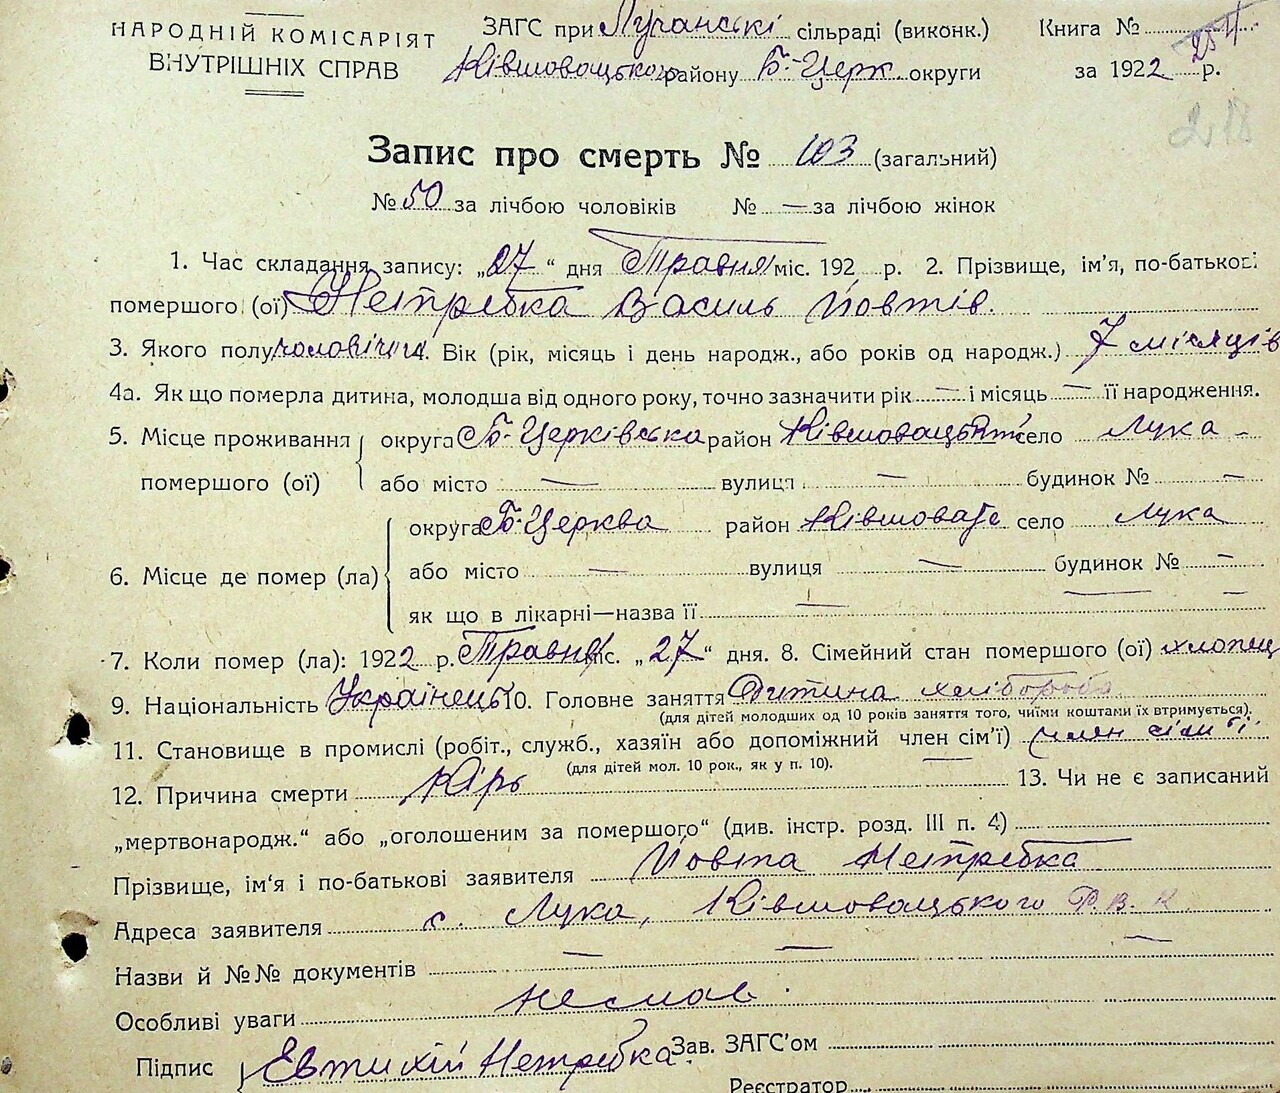 НАРОДНІЙ КОМІСАРІЯТ ВНУТРІШНІХ СПРАВ
ЗАГС при Лучанські сільраді (виконк.) Книга №
Ківшовацького району Б-Церк. округи за 1922 р.
218
Запис про смерть № 103 (загальний)
№ 50 за лічбою чоловіків № — за лічбою жінок
1. Час складання запису: „27“ дня Травня міс. 192 р. 2. Прізвище, ім'я, по-батькові
помершого (ої) Нетребка Василь Йовтів.
3. Якого полу чоловічого 4. Вік (рік, місяць і день народж., або років од народж.) 7 місяців
4а. Як що померла дитина, молодша від одного року, точно зазначити рік — і місяць — її народження.
5. Місце проживання помершого (ої) округа Б-Церківська район Ківшовацький село Лука —
або місто — вулиця — будинок № —
6. Місце де помер (ла) округа Б-Церква район Ківшовате село Лука
або місто — вулиця — будинок № —
як що в лікарні—назва її — — —
7. Коли помер (ла): 1922 р. Травня міс. „27“ дня. 8. Сімейний стан помершого (ої) хлопець
9. Національність Українець 10. Головне заняття Дитина хлібороба
(для дітей молодших од 10 років заняття того, чиїми коштами їх втримується).
11. Становище в промислі (робіт., служб., хазяїн або допоміжний член сім'ї) член сім'ї
(для дітей мол. 10 рок., як у п. 10). —
12. Причина смерти Кір 13. Чи не є записаний
„мертвонародж.“ або „оголошеним за помершого“ (див. інстр. розд. III п. 4)
Прізвище, ім'я і по-батькові заявителя Йовта Нетребка
Адреса заявителя с. Лука, Ківшовацького Р.В.К.
Назви й №№ документів — — —
Особливі уваги немає.
Підпис Евтихій Нетребка. Зав. ЗАГС'ом
Реєстратор